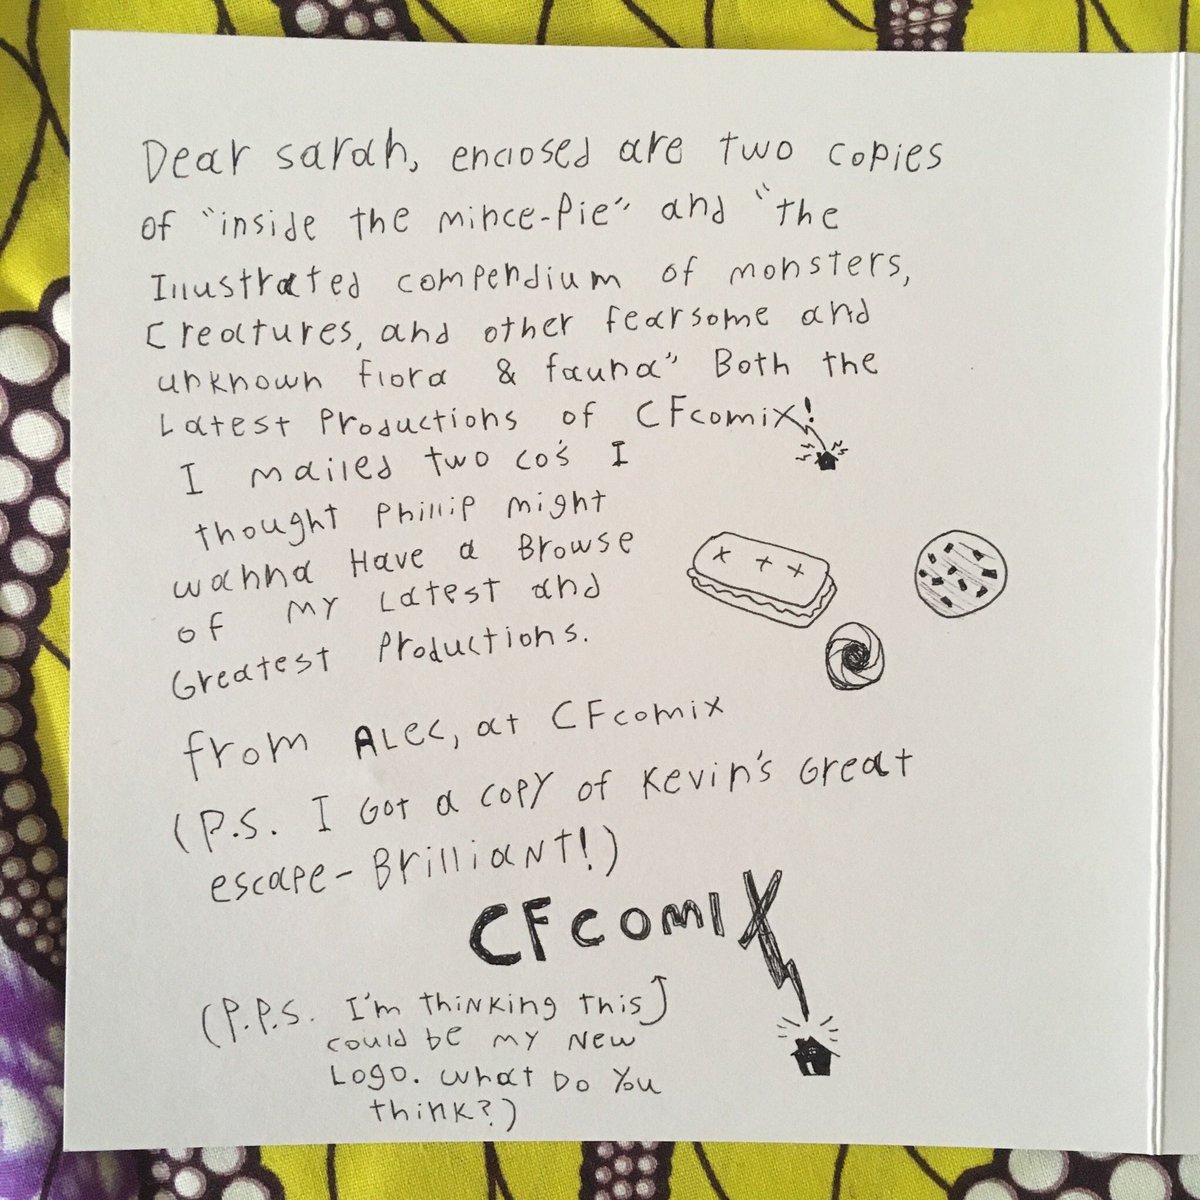 Dear sarah, enclosed are two copies
of "inside the mince-Pie" and "the
Illustrated compendium of monsters,
Creatures, and other fearsome and
unknown flora & fauna" Both the
Latest Productions of CFcomix!
I mailed two cos I
thought Phillip might
wanna Have a Browse
of my Latest and
Greatest Productions.
from Alec, at CFcomix
(P.S. I Got a copy of Kevin's Great
escape- Brilliant!)
CFcomix
(P.P.S. I'm thinking this
could be my new
Logo. what Do You
think?)